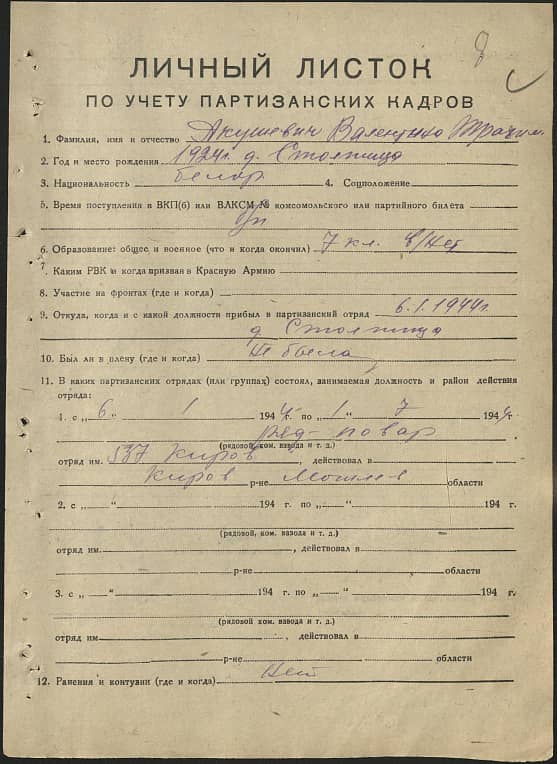 ЛИЧНЫЙ ЛИСТОК
ПО УЧЕТУ ПАРТИЗАНСКИХ КАДРОВ
1. Фамилия, имя и отчество Акушевич Валентина
2. Год и место рождения 1924г. д. Столпище
3. Национальность белор. 4. Соцположение
5. Время поступления в ВКП(б) или ВЛКСМ № комсомольского или партийного билета
б/п
6. Образование: общее и военное (что и когда окончил) 7 кл. в/нет
7. Каким РВК и когда призван в Красную Армию
8. Участие на фронтах (где и когда)
9. Откуда, когда и с какой должности прибыл в партизанский отряд 6.1.1944г.
д. Столпище
10. Был ли в плену (где и когда) не была
11. В каких партизанских отрядах (или группах) состоял, занимаемая должность и район действия
отряда:
1. с „ 6 “ 1 194 4 г. по „ 1 “ 7 194 4 г.
ряд-повар
(рядовой, ком. взвода и т. д.)
отряд им. 537 Киров , действовал в
Киров р-не Могилев области
2. с „ “ 194 г. по „ “ 194 г.
(рядовой, ком. взвода и т. д.)
отряд им. , действовал в
р-не области
3. с „ “ 194 г. по „ “ 194 г.
(рядовой, ком. взвода и т. д.)
отряд им. , действовал в
р-не области
12. Ранения и контузии (где и когда) Нет